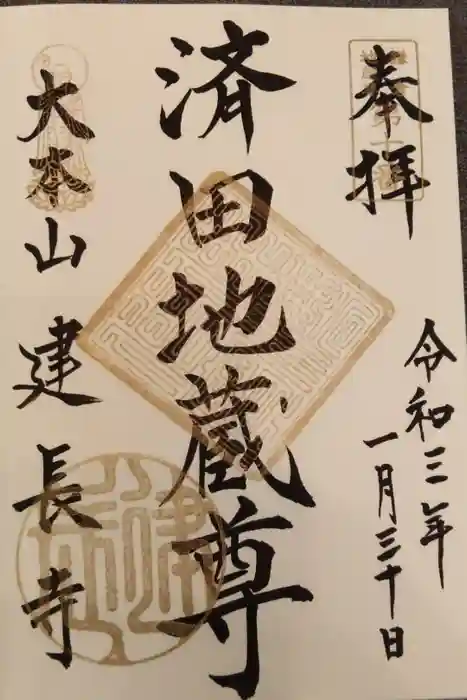 奉拝
令和三年
一月三十日
済田地蔵尊
大本山建長寺